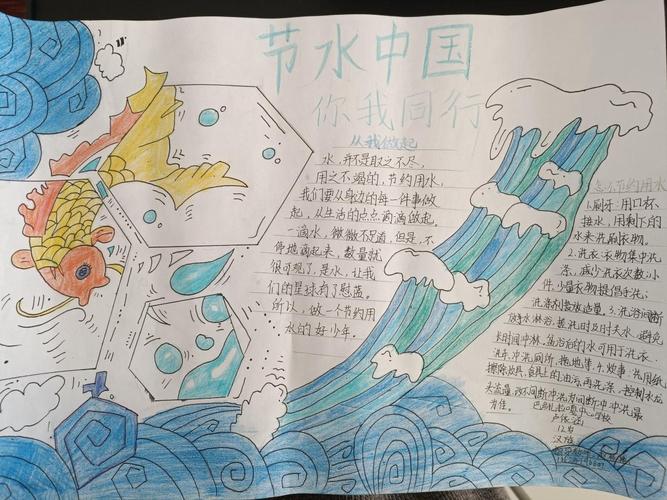 节水中国
你我同行
从我做起
水,并不是取之不尽,
用之不竭的,节约用水,
我们要从身边的每一件事做
起,从生活的点点滴滴做起。
一滴水,微微不足道,但是,不
停地滴起来,数量就
很可观了,是水,让我
们的星球有了蔚蓝。
所以,做一个节约用
水的好少年。
节约用水
1.刷牙:用口杯
接水,用剩下的
水来洗刷衣物。
2.洗衣:衣物集中洗
涤,减少洗衣次数;小
件、少量衣物提倡手洗;
洗涤剂 适量。3.洗浴:间断
放水淋浴,搓洗时及时关水,避免
长时间冲淋,盆浴后的水可用于洗衣、
洗车、冲洗厕所、拖地等。4.炊事:洗
擦除炊具、食具上的油污,再洗涤;控制水龙
头流量,改不间断冲洗为间断冲
12岁
汉族